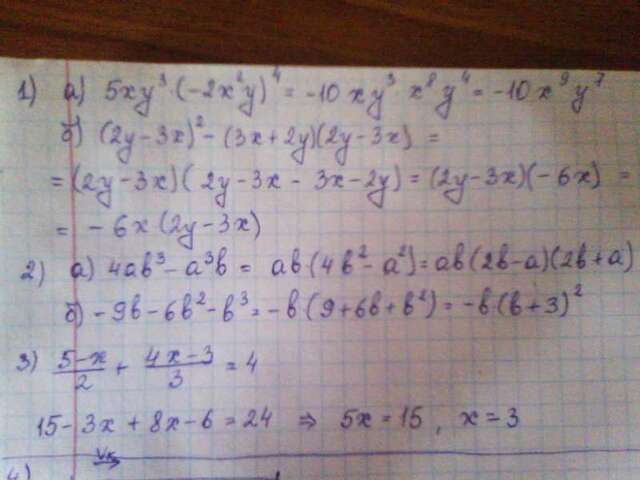 1) а) 5xy³·(-2x²y)⁴ = -10xy³ x⁸y⁴ = -10x⁹y⁷
б) (2y-3x)² - (3x+2y)(2y-3x) =
= (2y-3x)(2y-3x-3x-2y) = (2y-3x)(-6x) =
= -6x(2y-3x)
2) а) 4ab³ - a³b = ab(4b²-a²) = ab(2b-a)(2b+a)
б) -9b-6b²-b³ = -b(9+6b+b²) = -b(b+3)²
3) (5-x)/2 + (4x-3)/3 = 4
15-3x+8x-6=24 ⇒ 5x=15, x=3
4) Vк →